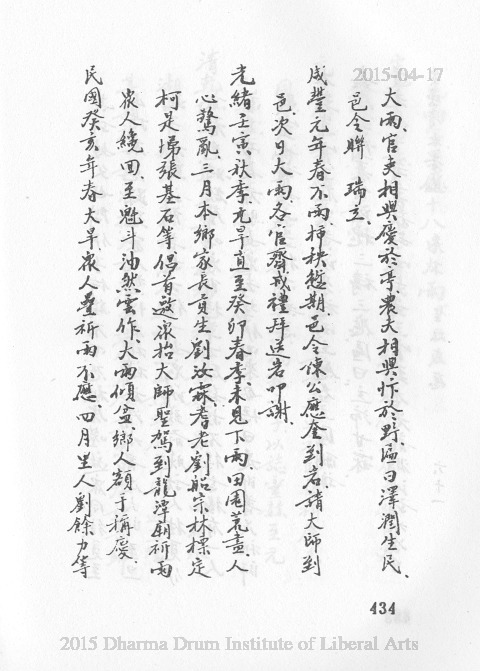 2015-04-17
大雨、官吏相與慶於亭、農夫相與忭於野、匾曰澤潤生民、
邑令聯 瑞立、
咸豐元年春不雨、插秧愆期、邑令陳公應奎到岩請大師到
邑、次日大雨、各官齋戒禮拜送岩叩謝、
光緒壬寅秋季亢旱、直至癸卯春季、未見下雨、田園荒盡、人
心驚亂、三月本鄉家長貢生劉汝霖、耆老劉船宗林標定
柯是埽張基石等倡首、敦衆抬大師聖駕到龍潭廟祈雨
衆人繞回、至魁斗油然雲作、大雨傾盆、鄉人額手稱慶
民國癸亥年春大旱、衆人疊祈雨不應、四月里人劉餘力等
434
2015 Dharma Drum Institute of Liberal Arts